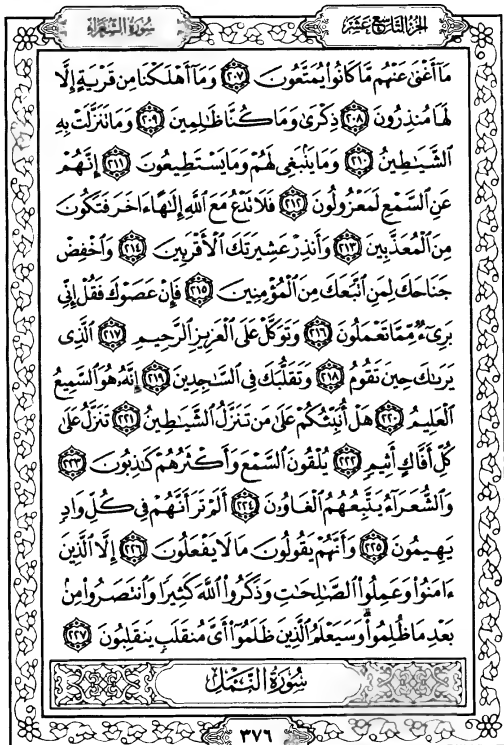 سُورَةُ الشُّعَرَاءِ
الجُزْءُ التَّاسِعَ عَشَرَ
مَآ أَغْنَىٰ عَنْهُم مَّا كَانُوا۟ يُمَتَّعُونَ ﴿٢٠٧﴾ وَمَآ أَهْلَكْنَا مِن قَرْيَةٍ إِلَّا
لَهَا مُنذِرُونَ ﴿٢٠٨﴾ ذِكْرَىٰ وَمَا كُنَّا ظَٰلِمِينَ ﴿٢٠٩﴾ وَمَا تَنَزَّلَتْ بِهِ
ٱلشَّيَٰطِينُ ﴿٢١٠﴾ وَمَا يَنۢبَغِى لَهُمْ وَمَا يَسْتَطِيعُونَ ﴿٢١١﴾ إِنَّهُمْ
عَنِ ٱلسَّمْعِ لَمَعْزُولُونَ ﴿٢١٢﴾ فَلَا تَدْعُ مَعَ ٱللَّهِ إِلَٰهًا ءَاخَرَ فَتَكُونَ
مِنَ ٱلْمُعَذَّبِينَ ﴿٢١٣﴾ وَأَنذِرْ عَشِيرَتَكَ ٱلْأَقْرَبِينَ ﴿٢١٤﴾ وَٱخْفِضْ
جَنَاحَكَ لِمَنِ ٱتَّبَعَكَ مِنَ ٱلْمُؤْمِنِينَ ﴿٢١٥﴾ فَإِنْ عَصَوْكَ فَقُلْ إِنِّى
بَرِىٓءٌ مِّمَّا تَعْمَلُونَ ﴿٢١٦﴾ وَتَوَكَّلْ عَلَى ٱلْعَزِيزِ ٱلرَّحِيمِ ﴿٢١٧﴾ ٱلَّذِى
يَرَىٰكَ حِينَ تَقُومُ ﴿٢١٨﴾ وَتَقَلُّبَكَ فِى ٱلسَّٰجِدِينَ ﴿٢١٩﴾ إِنَّهُۥ هُوَ ٱلسَّمِيعُ
ٱلْعَلِيمُ ﴿٢٢٠﴾ هَلْ أُنَبِّئُكُمْ عَلَىٰ مَن تَنَزَّلُ ٱلشَّيَٰطِينُ ﴿٢٢١﴾ تَنَزَّلُ عَلَىٰ
كُلِّ أَفَّاكٍ أَثِيمٍ ﴿٢٢٢﴾ يُلْقُونَ ٱلسَّمْعَ وَأَكْثَرُهُمْ كَٰذِبُونَ ﴿٢٢٣﴾
وَٱلشُّعَرَآءُ يَتَّبِعُهُمُ ٱلْغَاوُۥنَ ﴿٢٢٤﴾ أَلَمْ تَرَ أَنَّهُمْ فِى كُلِّ وَادٍ
يَهِيمُونَ ﴿٢٢٥﴾ وَأَنَّهُمْ يَقُولُونَ مَا لَا يَفْعَلُونَ ﴿٢٢٦﴾ إِلَّا ٱلَّذِينَ
ءَامَنُوا۟ وَعَمِلُوا۟ ٱلصَّٰلِحَٰتِ وَذَكَرُوا۟ ٱللَّهَ كَثِيرًا وَٱنتَصَرُوا۟ مِنۢ
بَعْدِ مَا ظُلِمُوا۟ ۗ وَسَيَعْلَمُ ٱلَّذِينَ ظَلَمُوٓا۟ أَىَّ مُنقَلَبٍ يَنقَلِبُونَ ﴿٢٢٧﴾
سُورَةُ النَّمْلِ
٣٧٦